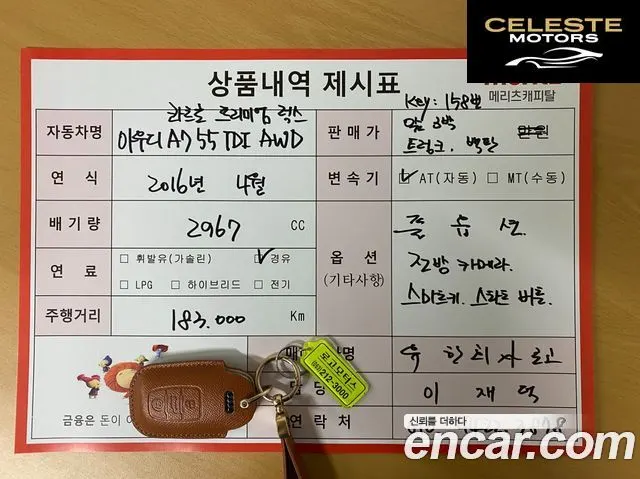 CELESTE
MOTORS
상품내역 제시표
메리츠캐피탈
Key: 158번
자동차명
아우디 A7 55 TDI AWD
판매가
트렁크.
만원
연식 2016년 4월
변속기 ☑ AT(자동) □ MT(수동)
배기량 2967 CC
옵션
(기타사항)
풀 옵션.
전방 카메라.
스마트키. 스타트 버튼.
연료
□ 휘발유(가솔린) ☑ 경유
□ LPG □ 하이브리드 □ 전기
주행거리 183.000 Km
로고모터스
212-3000
금융은 돈이
연락처
신뢰를 더하다
encar.com